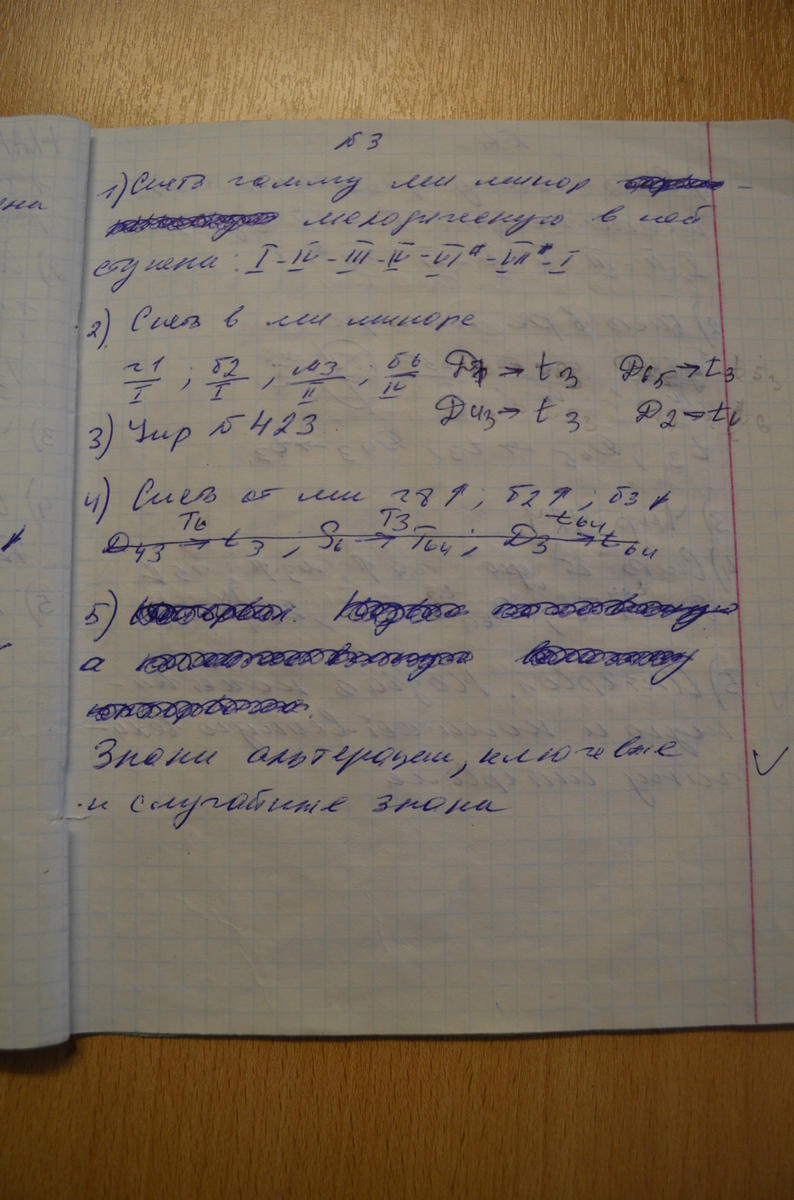 №3
1) Спеть гамму ми минор
мелодическую в ней
ступени: I - IV - III - IV - VI# - VII# - I
2) Спеть в ми миноре
ч1/I ; б2/I ; м3/II ; б6/IV D7 → t3 D65 → t3
D43 → t3 D2 → t6
3) Упр №423
4) Спеть от ми ч8↑; б2↑; б3↑
T6 T3 t64
D43 → t3 ; S6 → T64 ; D3 → t64
5)
а
Знаки альтерации, ключевые
и случайные знаки